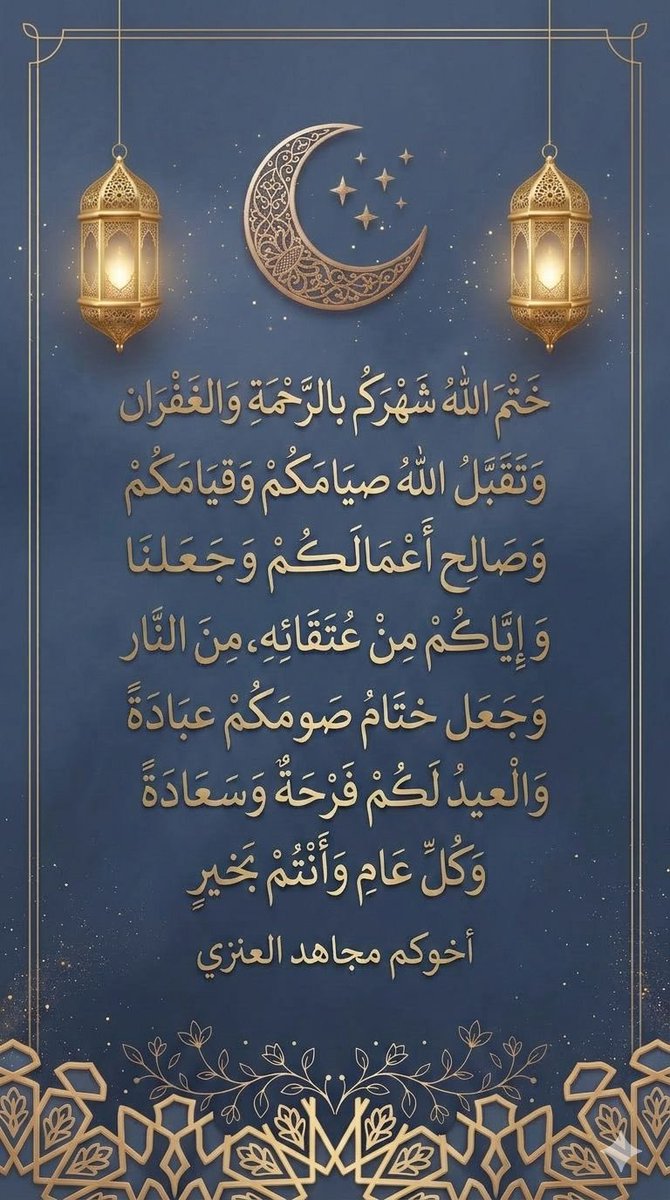 خَتْمَ اللهُ شَهْرَكُم بالرَّحْمَةِ وَالغَفْرَان
وَتَقَبَّلُ اللهُ صيَامَكُمْ وَقيَامَكُمْ
وَصَالِح أَعْمَالَكُمْ وَجَعَلنَا
وَإِيَّاكُمْ مِنْ عُتَقَائِهِ، مِنَ النَّار
وَجَعَل ختَامُ صَومَكُمْ عبَادَةً
وَالْعيدُ لَكُمْ فَرْحَةٌ وَسَعَادَةً
وَكُلِّ عَامِ وَأَنْتُمْ بَخيرٍ
أخوكم مجاهد العنزي